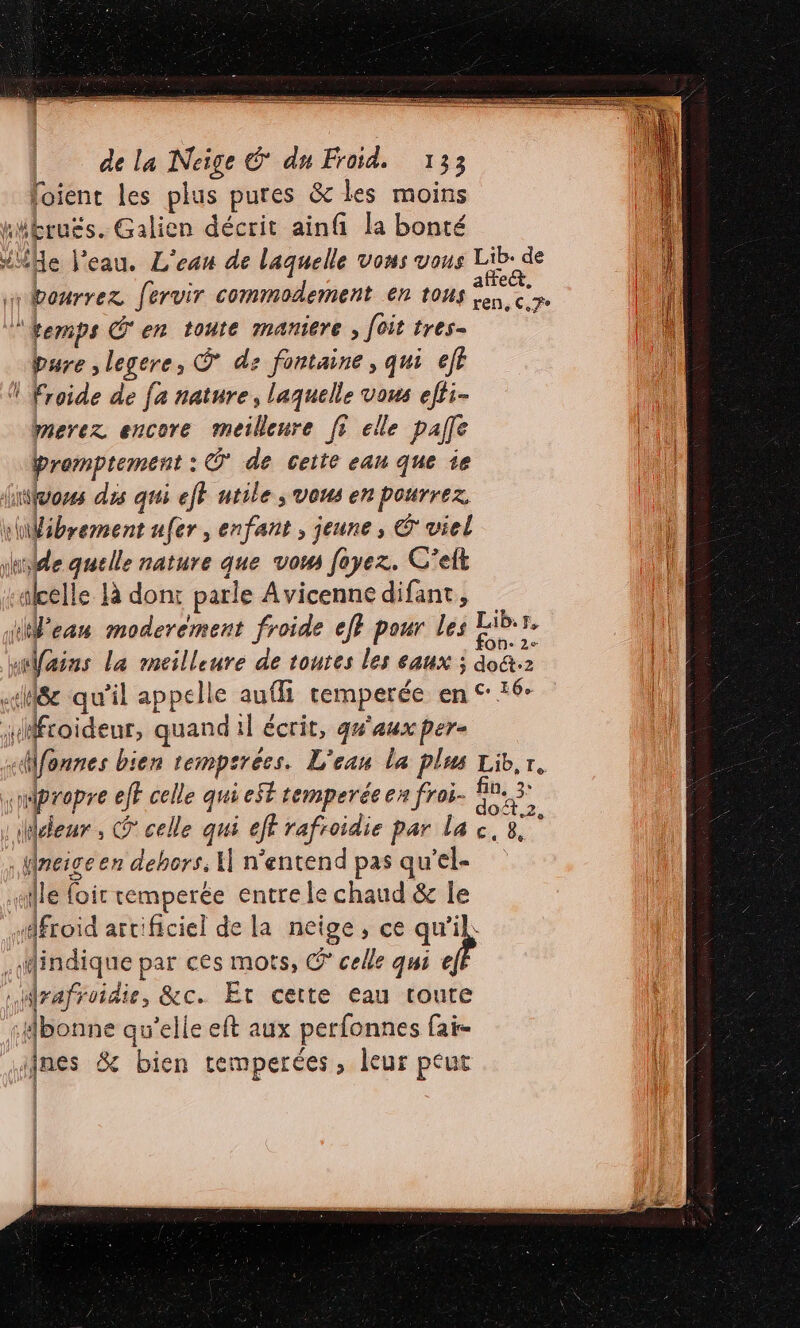 de la Neige & du Froid. 133
ſoient les plus pures & les moins
cruës. Galien décrit ainſi la bonté
de l'eau. L'eau de laquelle vous vous
pourrez ſervir commodement en tous
temps & en toute maniere, ſoit tres-
pure, legere, & de fontaine, qui eſt
froide de ſa nature, laquelle vous eſti-
merez encore meilleure ſi elle paſſe
promptement : & de cette eau que ie
vous dis qui eſt utile, vous en pourrez
librement uſer, enfant, jeune, & viel
de quelle nature que vous ſoyez. C'eſt
celle là dont parle Avicenne diſant,
l'eau moderément froide eſt pour les
ſains la meilleure de toutes les eaux ;
& qu'il appelle auſſi temperée en
froideur, quand il écrit, qu'aux per-
ſonnes bien temperées. L'eau la plus
propre eſt celle qui eſt temperée en froi-
deur, & celle qui eſt rafroidie par la
neige en dehors. Il n'entend pas qu'el-
le ſoit temperée entre le chaud & le
froid artificiel de la neige, ce qu'il
indique par ces mots, & celle qui eſt
rafroidie, &c. Et cette eau toute
bonne qu'elle eſt aux perſonnes ſai-
nes & bien temperées, leur peut
Lib. de
affect.
ren. c. 7.
Lib. 1.
fon. 2.
doct. 2
c. 16.
Lib. 1.
fin. 3.
doct. 2.
c. 8.